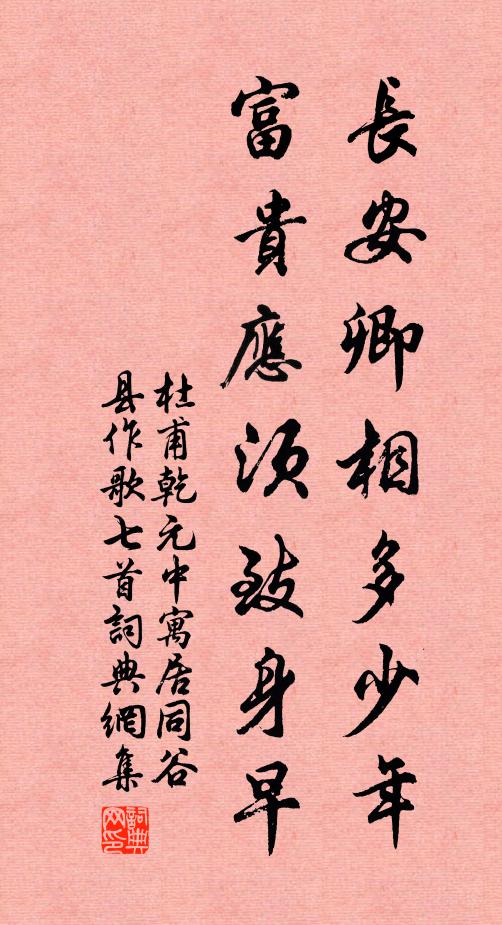 長安卿相多少年
富貴應須致身早
杜甫乾元中寓居同谷
县作歌七首詞典網集
詞典网印